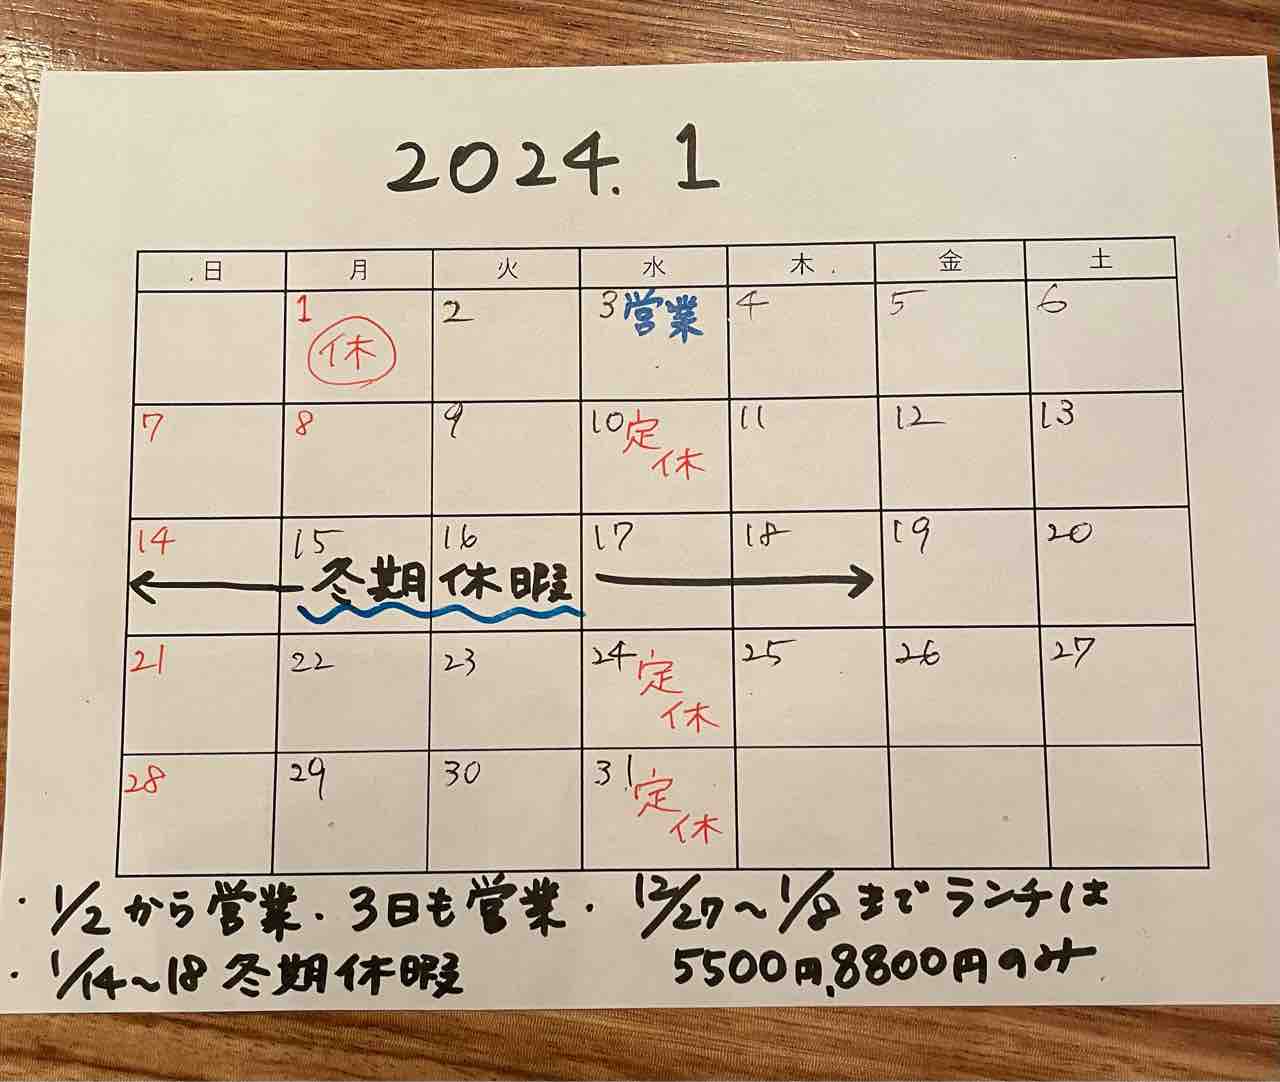 2024.1
日 月 火 水 木 金 土
1 2 3 営業 4 5 6
休
7 8 9 10 定休 11 12 13
14 15 16 17 18 19 20
冬期休暇
21 22 23 24 定休 25 26 27
28 29 30 31 定休
・1/2から営業、3日も営業
・1/14～18 冬期休暇
・12/27～1/8までランチは
5500円,8800円のみ